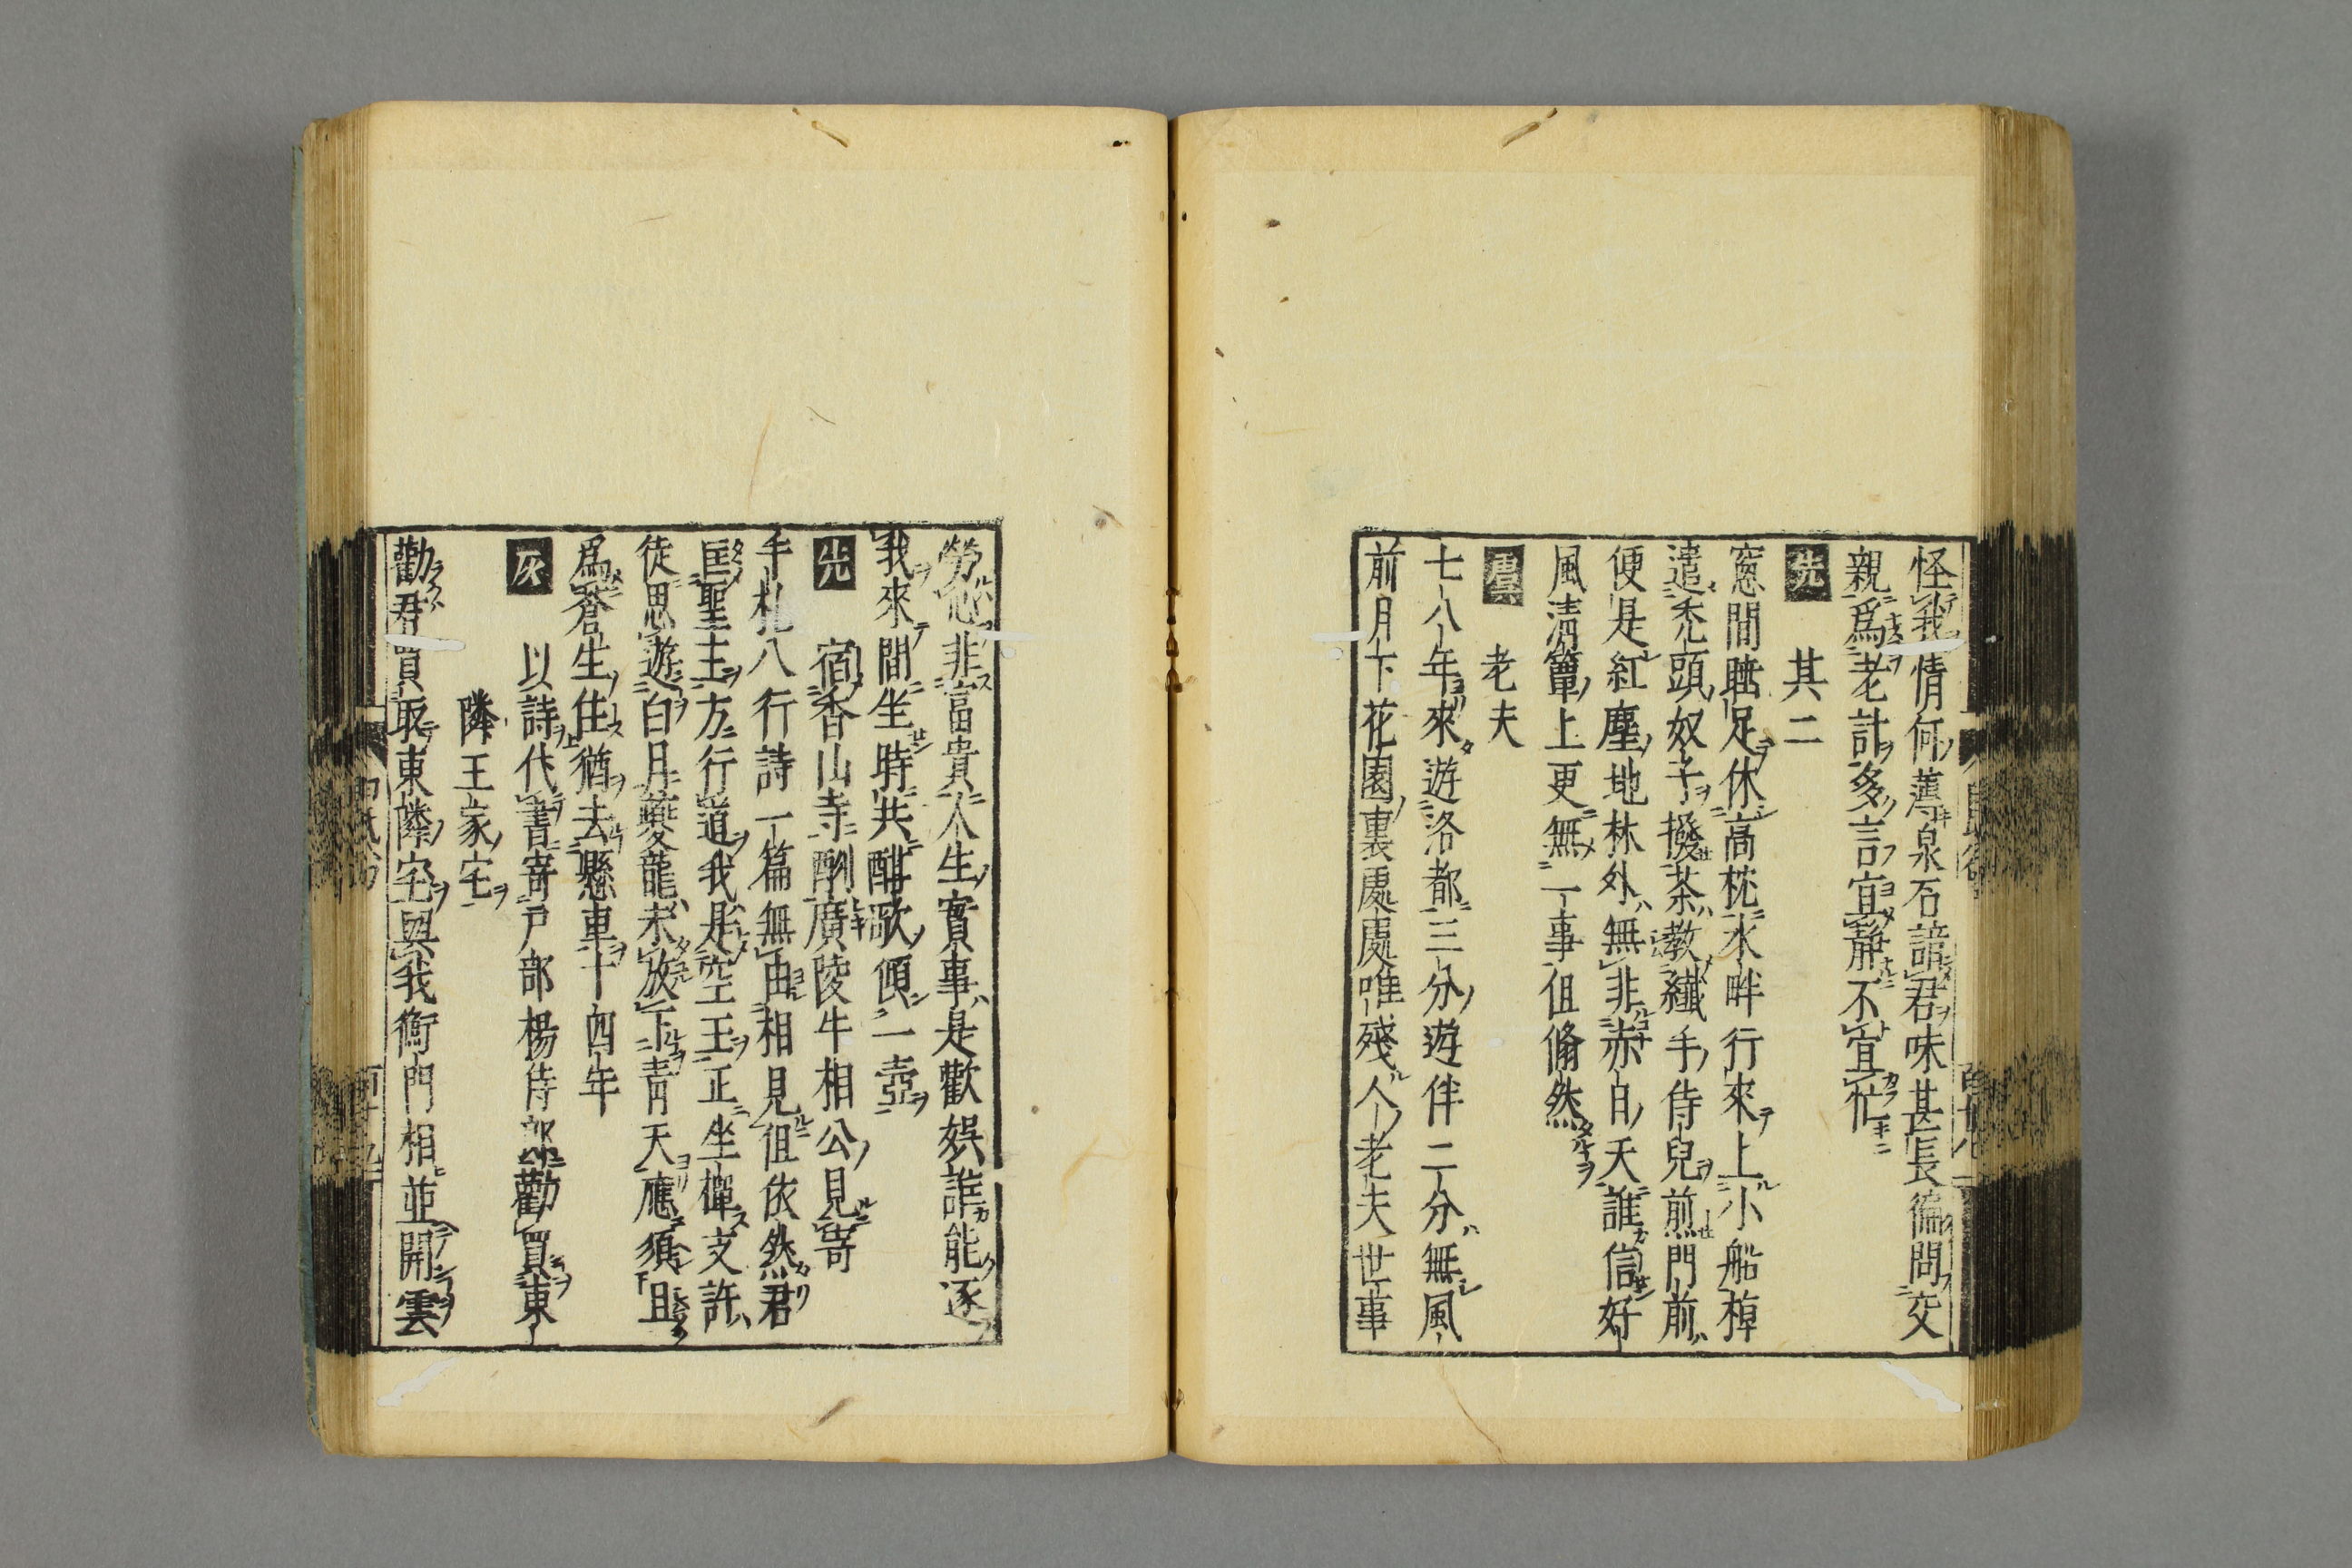 怪我情何薄泉石諳君味甚長徧問交
親爲老計多言宜靜不宜忙
先 其二
窓間睡足休高枕水畔行來上小船棹
遣禿頭奴子撥茶教纖手侍兒煎門前
便是紅塵地林外無非赤白天誰信好
風清簟上更無一事但翛然
虞 老夫
七八年來遊洛都三分遊伴二分無風
前月下花園裏處處唯殘个老夫世事
勞心非富貴人生實事是歡娯誰能逐
我來間坐時共酣歌傾一壺
先 宿香山寺酬廣陵牛相公見寄
手札八行詩一篇無由相見但依然君
匡聖主方行道我是空王正坐禪支許
徒思遊白月夔龍未放下青天應須且
爲蒼生住猶去懸車十四年
灰 以詩代書寄戸部楊侍郎勸買東
隣王家宅
勸君買取東隣宅與我衡門相並開雲